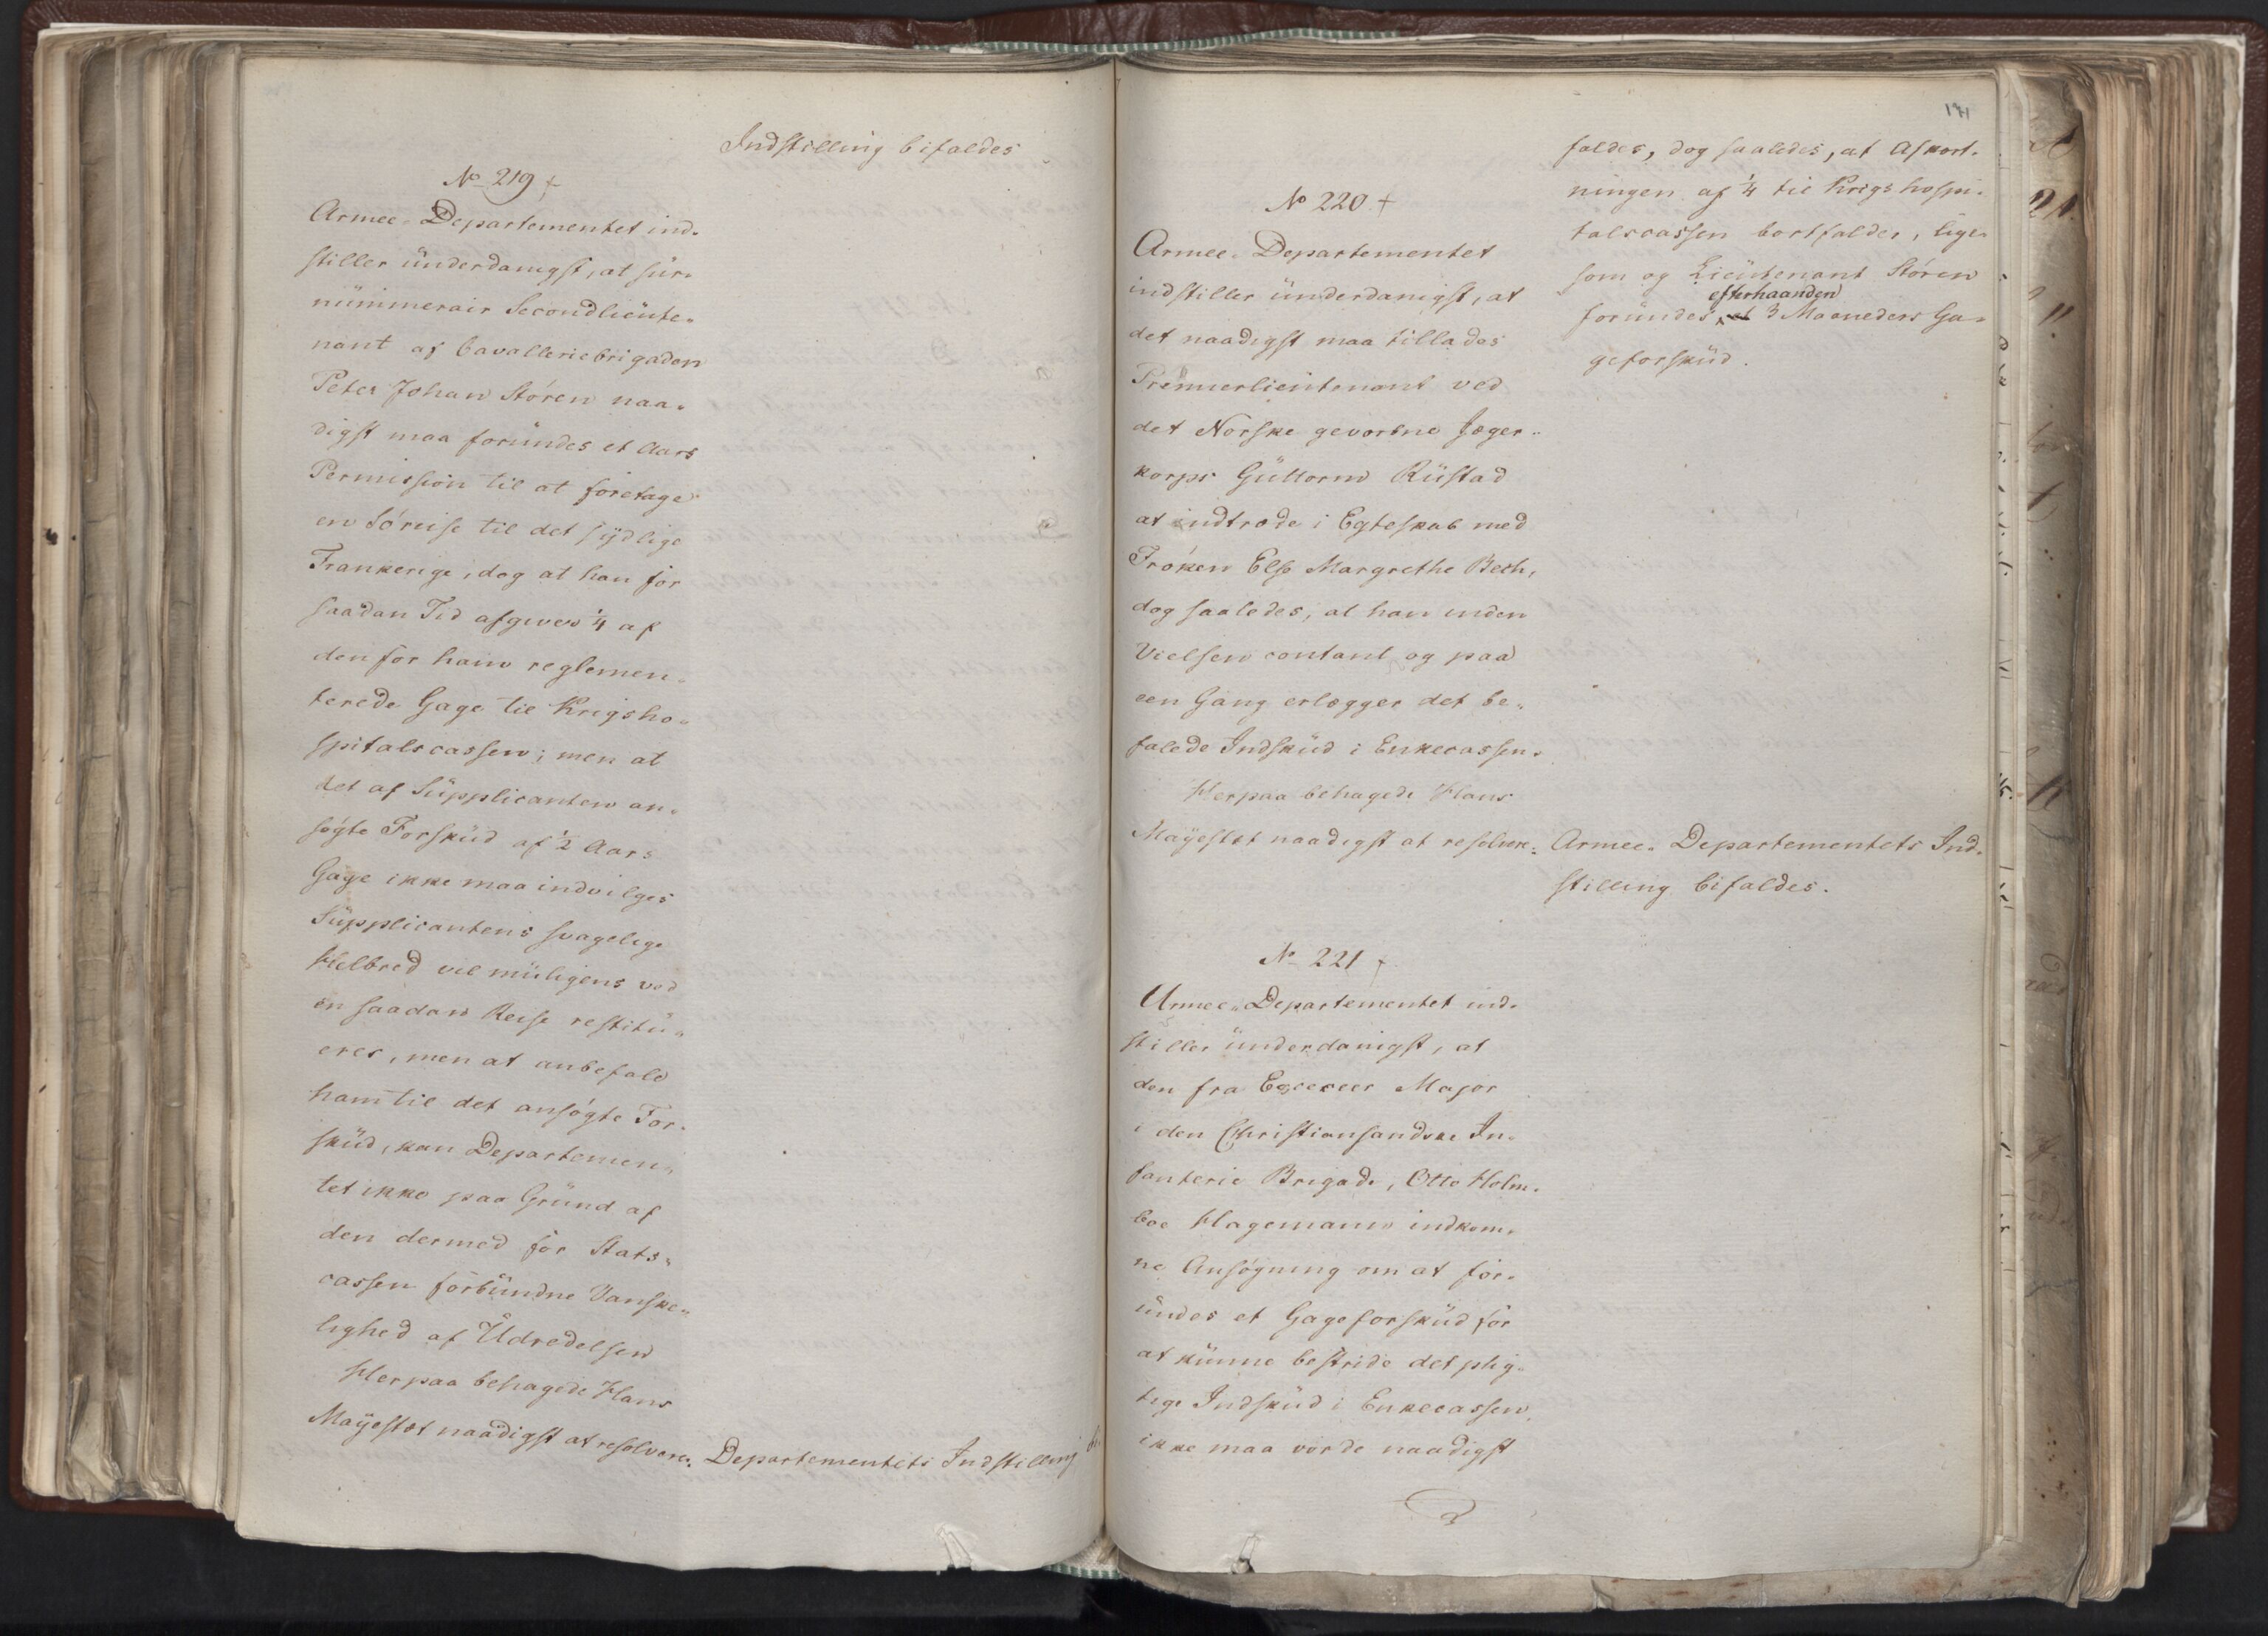 Indstilling bifaldes
No 219 +
Armee-Departementet ind-
stiller ünderdanigst, at sür-
nümmerair Secondlieüte-
nant af Cavalleriebrigaden
Peter Johan Stören naa-
digst maa foründes et Aars
Permission til at foretage
en Söreise til det sÿdlige
Frankerige, dog at han for
saadan Tid afgiver 1/4 af
den for ham reglemen-
terede Gage til Krigsho-
spitalscassen; men at
det af Süpplicanten an-
søgte Forsküd af 1/2 Aars
Gage ikke maa indvilges
Süpplicantens svagelige
Helbred vil müligens ved
en saadan Reise restitü-
eres, men at anbefale
ham til det ansøgte For-
sküd, kan Departemen-
tet ikke paa Gründ af
den dermed for Stats-
cassen forbündne Vanske-
lighed af Üdredelsen
Herpaa behagede Hans
Mayestæt naadigst at resolvere: Departementets Indstilling bi-
171
faldes, dog saaledes, at Afkort-
ningen af 1/4 til Krigshospi-
talscassen bortfalder, lige-
som og Lieütenant Stören
efterhaanden
foründes et 3 Maaneders Ga-
geforsküd.
No 220 +
Armee-Departementet
indstiller ünderdanigst, at
det naadigst maa tillades
Premierlieutenant ved
det Norske gevorbne Jæger-
korps Güttorm Rüstad
at indtræde i Egteskab med
Fröken Else Margrethe Bech,
dog saaledes, at han inden
Vielsen contant og paa
een Gang erlægger det be-
falede Indsküd i Enkecassen.
Herpaa behagede Hans
Mayestæt naadigst at resolvere: Armee-Departementets Ind-
stilling bifaldes.
No 221 +
Armee-Departementet ind-
stiller ünderdanigst, at
den fra Exerceer Major
i den Christiansandske In-
fanterie Brigade, Otto Holm-
boe Hagemann indkom-
ne Ansøgning om at for-
ündes et Gageforsküd for
at künne bestride det plig-
tige Indsküd i Enkecassen,
ikke maa vorde naadigst